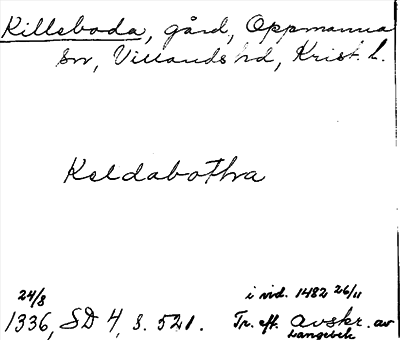 Killeboda, gård, Oppmanna
sn, Villands hd, Krist. l.
Keldabothra
24/8 i vid. 1482 26/11
1336, SD 4, s. 521. Tr. eft. avskr. av
Langebek